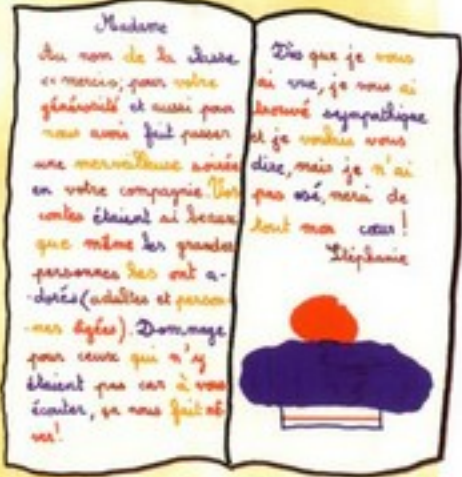 Madame
Au nom de la classe
« merci»; pour votre
générosité et aussi pour
nous avoir fait passer
une merveilleuse soirée
en votre compagnie. Vos
contes étaient si beaux
que même les grandes
personnes les ont a-
-dorés (adultes et person
-nes âgées). Dommage
pour ceux qui n'y
étaient pas car à vous
écouter, ça nous fait rê
ver!
Dès que je vous
ai vue, je vous ai
trouvé sympathique
et je voulais vous
dire, mais je n'ai
pas osé, merci de
tout mon cœur!
Stéphanie